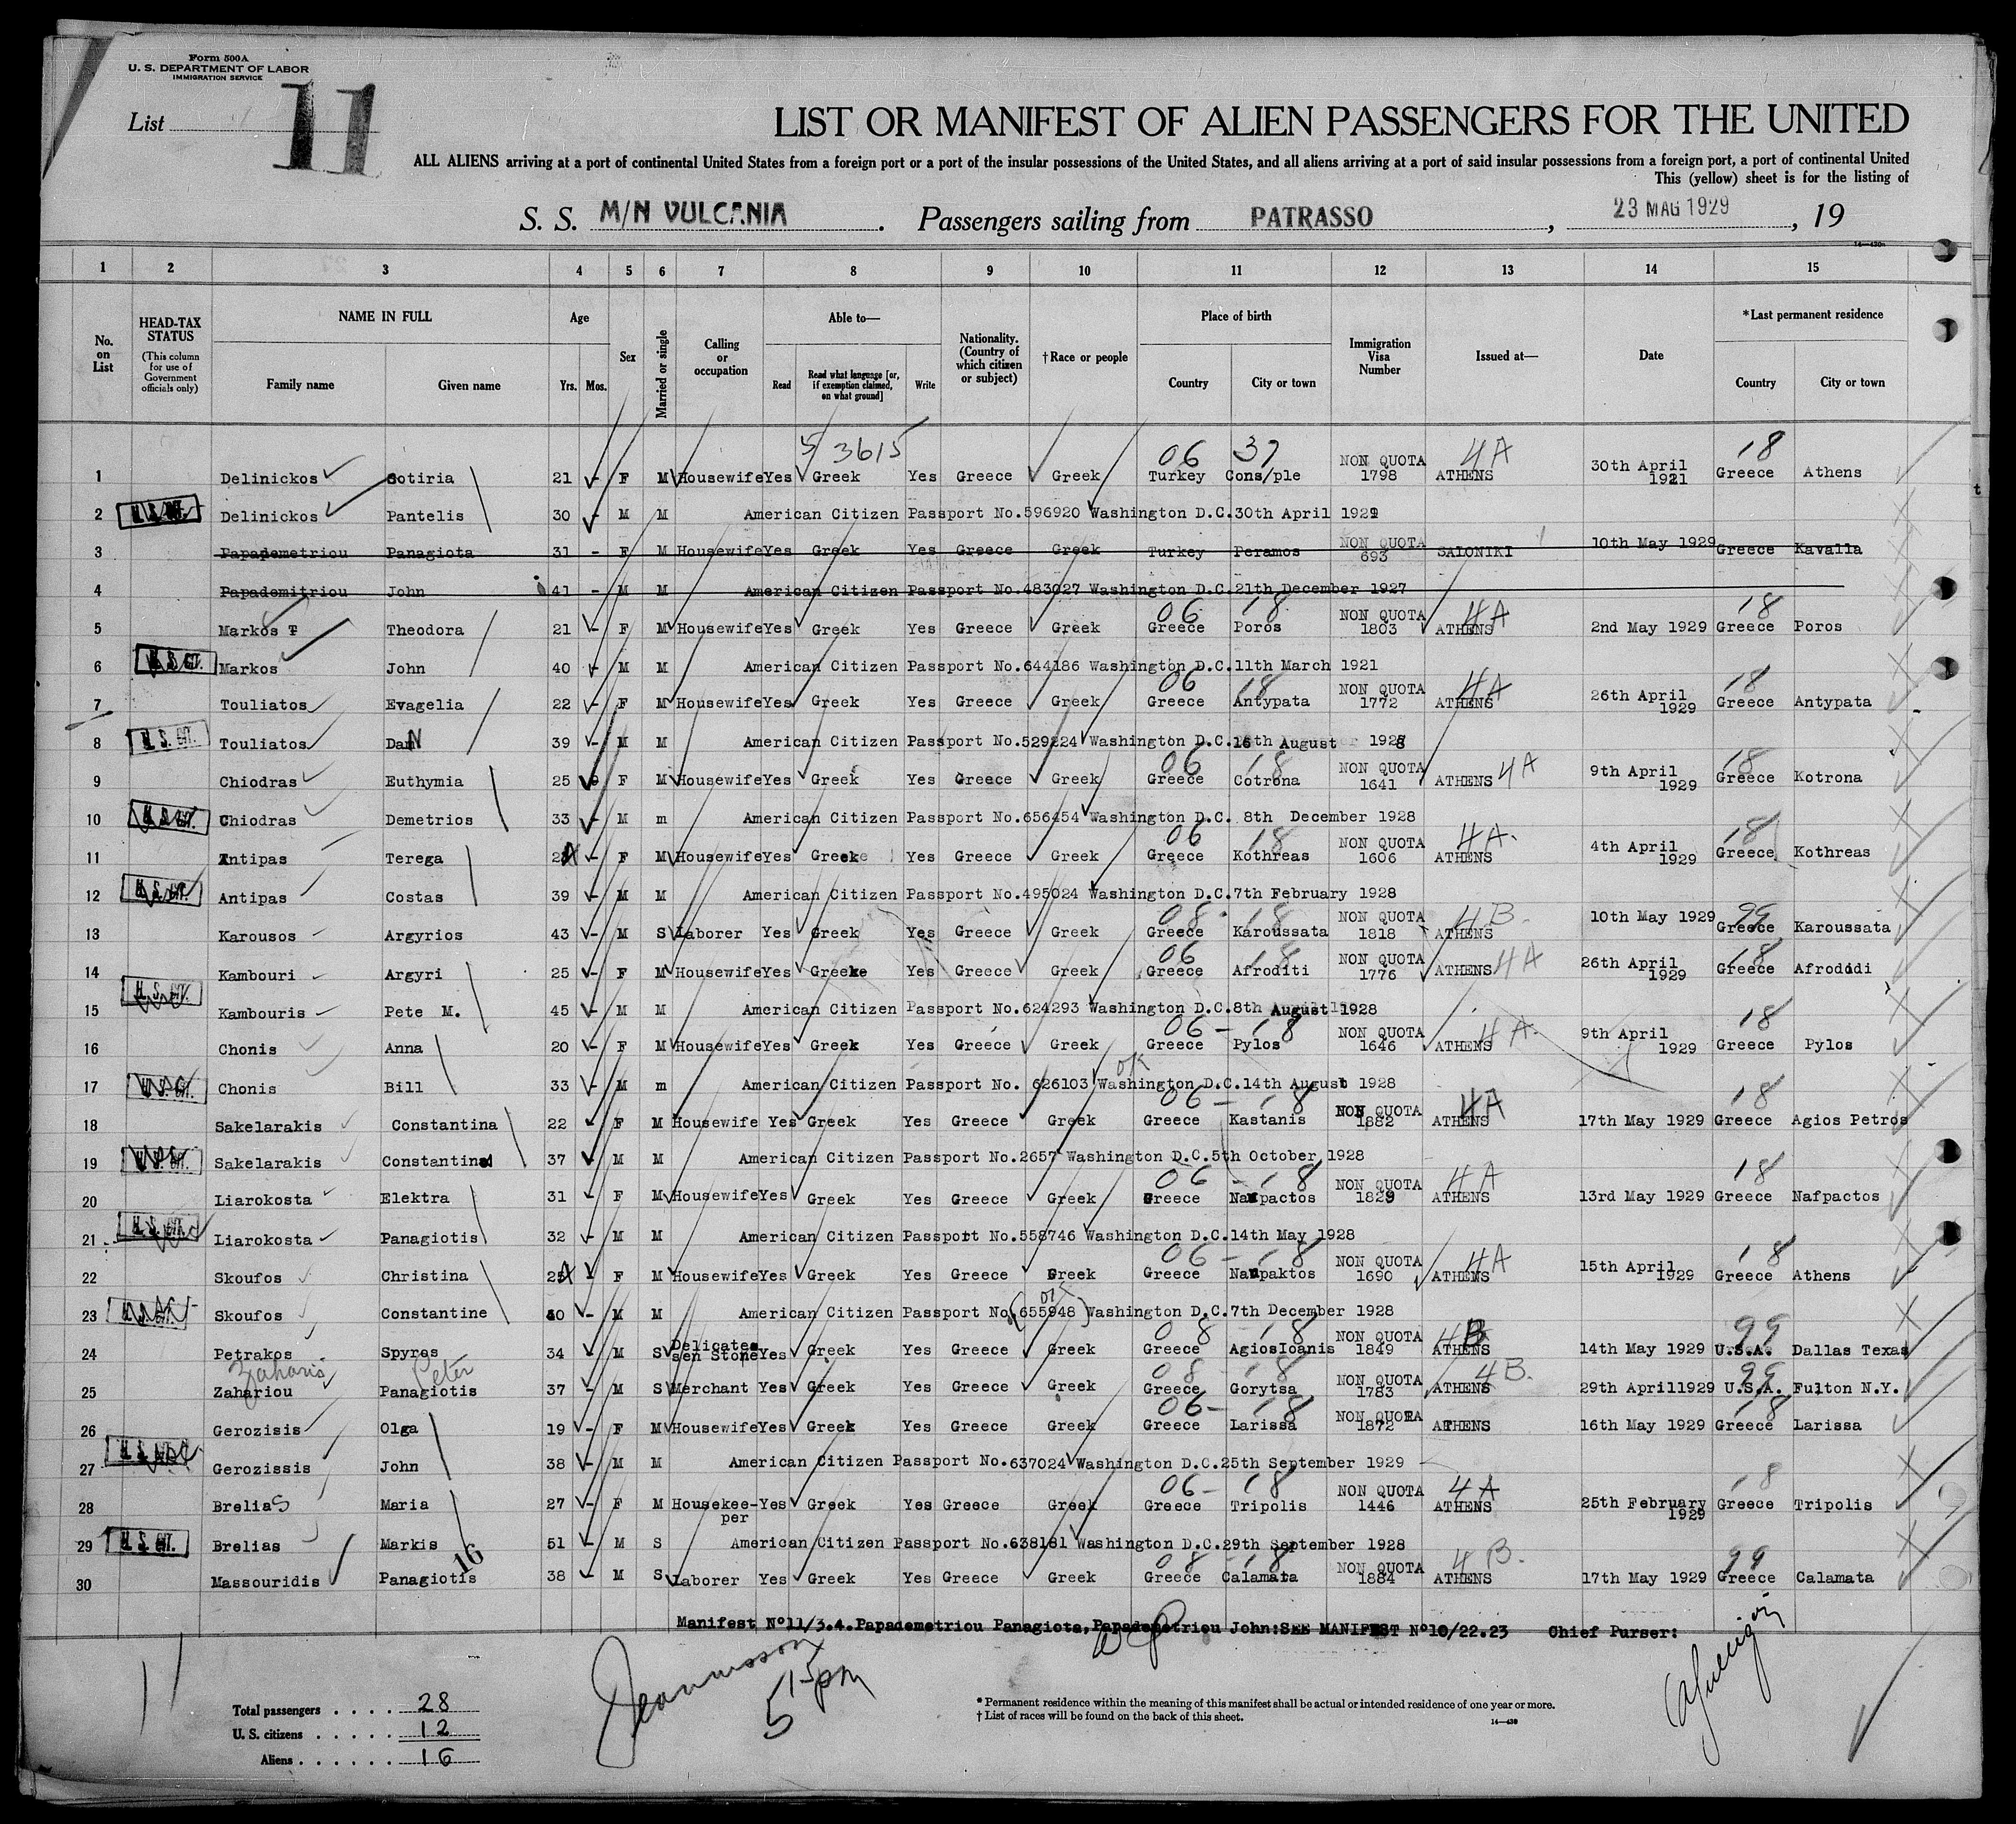 Form 500A
U. S. DEPARTMENT OF LABOR
IMMIGRATION SERVICE
List 11
LIST OR MANIFEST OF ALIEN PASSENGERS FOR THE UNITED
ALL ALIENS arriving at a port of continental United States from a foreign port or a port of the insular possessions of the United States, and all aliens arriving at a port of said insular possessions from a foreign port, a port of continental United
This (yellow) sheet is for the listing of
S. S. M/N VULCANIA . Passengers sailing from PATRASSO , 23 MAG 1929 , 19
14—430a
1 2 3 4 5 6 7 8 9 10 11 12 13 14 15
No. on List HEAD-TAX STATUS (This column for use of Government officials only) NAME IN FULL Family name Given name Age Yrs. Mos. Sex Married or single Calling or occupation Able to— Read Read what language [or, if exemption claimed, on what ground] Write Nationality. (Country of which citizen or subject) † Race or people Place of birth Country City or town Immigration Visa Number Issued at— Date * Last permanent residence Country City or town
5/3615 06 37 4A 18
1 Delinickos Sotiria 21 - F M Housewife Yes Greek Yes Greece Greek Turkey Cons/ple NON QUOTA 1798 ATHENS 30th April 1921 Greece Athens
2 U.S. CIT. Delinickos Pantelis 30 - M M American Citizen Passport No.596920 Washington D.C.30th April 1929
3 Papademetriou Panagiota 31 - F M Housewife Yes Greek Yes Greece Greek Turkey Peramos NON QUOTA 693 SALONIKI 10th May 1929 Greece Kavalla
4 Papademitriou John 41 - M M American Citizen Passport No.483027 Washington D.C.21th December 1927
06 18 4A 18
5 Markos T Theodora 21 - F M Housewife Yes Greek Yes Greece Greek Greece Poros NON QUOTA 1803 ATHENS 2nd May 1929 Greece Poros
6 U.S. CIT. Markos John 40 - M M American Citizen Passport No.644186 Washington D.C.11th March 1921
06 18 4A 18
7 Touliatos Evagelia 22 - F M Housewife Yes Greek Yes Greece Greek Greece Antypata NON QUOTA 1772 ATHENS 26th April 1929 Greece Antypata
8 U.S. CIT. Touliatos Dan 39 - M M American Citizen Passport No.529224 Washington D.C.16th August 1928
06 18 4A 18
9 Chiodras Euthymia 25 F M Housewife Yes Greek Yes Greece Greek Greece Cotrona NON QUOTA 1641 ATHENS 9th April 1929 Greece Kotrona
10 U.S. CIT. Chiodras Demetrios 33 - M m American Citizen Passport No.656454 Washington D.C. 8th December 1928
06 18 4A. 18
11 Antipas Terega - F M Housewife Yes Greek Yes Greece Greek Greece Kothreas NON QUOTA 1606 ATHENS 4th April 1929 Greece Kothreas
12 U.S. CIT. Antipas Costas 39 - M M American Citizen Passport No.495024 Washington D.C.7th February 1928
08 18 4B. 99
13 Karousos Argyrios 43 - M S Laborer Yes Greek Yes Greece Greek Greece Karoussata NON QUOTA 1818 ATHENS 10th May 1929 Greece Karoussata
06 18 4A 18
14 Kambouri Argyri 25 - F M Housewife Yes Greeke Yes Greece Greek Greece Afroditi NON QUOTA 1776 ATHENS 26th April 1929 Greece Afrodidi
15 U.S. CIT. Kambouris Pete M. 45 - M M American Citizen Passport No.624293 Washington D.C.8th August 1928
06 - 18 4A. 18
16 Chonis Anna 20 - F M Housewife Yes Greek Yes Greece Greek Greece Pylos NON QUOTA 1646 ATHENS 9th April 1929 Greece Pylos
17 U.S. CIT. Chonis Bill 33 - M m American Citizen Passport No. 626103 ok Washington D.C.14th August 1928
06 - 18 4A 18
18 Sakelarakis Constantina 22 F M Housewife Yes Greek Yes Greece Greek Greece Kastanis NON QUOTA 1882 ATHENS 17th May 1929 Greece Agios Petros
19 U.S. CIT. Sakelarakis Constantine 37 - M M American Citizen Passport No.2657 Washington D.C.5th October 1928
06 - 18 4A 18
20 Liarokosta Elektra 31 - F M Housewife Yes Greek Yes Greece Greek Greece Nafpactos NON QUOTA 1829 ATHENS 13rd May 1929 Greece Nafpactos
21 U.S. CIT. Liarokosta Panagiotis 32 - M M American Citizen Passport No.558746 Washington D.C.14th May 1928
06 - 18 4A 18
22 Skoufos Christina 25 - F M Housewife Yes Greek Yes Greece Greek Greece Naupaktos NON QUOTA 1690 ATHENS 15th April 1929 Greece Athens
23 U.S. CIT. Skoufos Constantine 40 - M M American Citizen Passport No.(655948) ok Washington D.C.7th December 1928
08 18 4B 99
24 Petrakos Spyros 34 M S Delicatessen Stone Yes Greek Yes Greece Greek Greece AgiosIoanis NON QUOTA 1849 ATHENS 14th May 1929 U.S.A. Dallas Texas
Zaharis Peter 08 - 18 4B. 99
25 Zahariou Panagiotis 37 - M S Merchant Yes Greek Yes Greece Greek Greece Gorytsa NON QUOTA 1783 ATHENS 29th April1929 U.S.A. Fulton N.Y.
06 - 18 18
26 Gerozisis Olga 19 - F M Housewife Yes Greek Yes Greece Greek Greece Larissa NON QUOTA 1872 ATHENS 16th May 1929 Greece Larissa
27 U.S. CIT. Gerozissis John 38 - M M American Citizen Passport No.637024 Washington D.C.25th September 1929
06 - 18 4A 18
28 Brelias Maria 27 - F M Housekeeper Yes Greek Yes Greece Greek Greece Tripolis NON QUOTA 1446 ATHENS 25th February 1929 Greece Tripolis
29 U.S. CIT. Brelias Markis 51 - M S American Citizen Passport No.638181 Washington D.C.29th September 1928
16 08 - 18 4B. 99
30 Massouridis Panagiotis 38 - M S Laborer Yes Greek Yes Greece Greek Greece Calamata NON QUOTA 1884 ATHENS 17th May 1929 Greece Calamata
Manifest No11/3.4.Papademetriou Panagiota,Papademetriou John:SEE MANIFEST No10/22.23 Chief Purser:
5 15 pm
Total passengers . . . . 28
U. S. citizens . . . . . 12
Aliens . . . . . . 16
* Permanent residence within the meaning of this manifest shall be actual or intended residence of one year or more.
† List of races will be found on the back of this sheet.
14—430